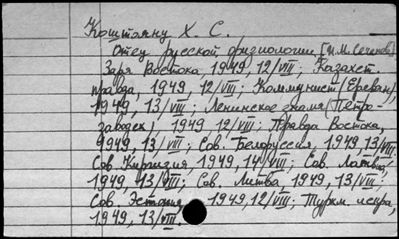 Коштоянц Х. С.
Отец русской физиологии [И.М. Сеченов]
Заря Востока, 1949, 12/VIII; Казахст.
правда, 1949, 12/VIII; Коммунист (Ереван),
1949, 13/VIII; Ленинское знамя (Петро-
заводск) 1949 12/VIII; Правда Востока,
1949, 13/VIII; Сов. Белоруссия, 1949, 13/VIII,
Сов. Киргизия, 1949, 14/VIII; Сов. Латвия,
1949, 13/VIII; Сов. Литва 1949, 13/VIII;
Сов. Эстония 1949, 12/VIII; Туркм. искра,
1949, 13/VIII.